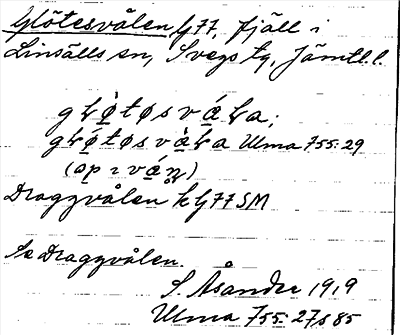 Glötesvålen G77, fjäll i
Linsälls sn, Svegs tg, Jämtl.l.
gƚø̀tøsváƚa;
gƚǿtøsvàƚa Ulma 755:29
(op ı váṇ)
Draggvålen k G77 SM
Se Draggvålen.
S. Åsander 1919
Ulma 755:27 s 85